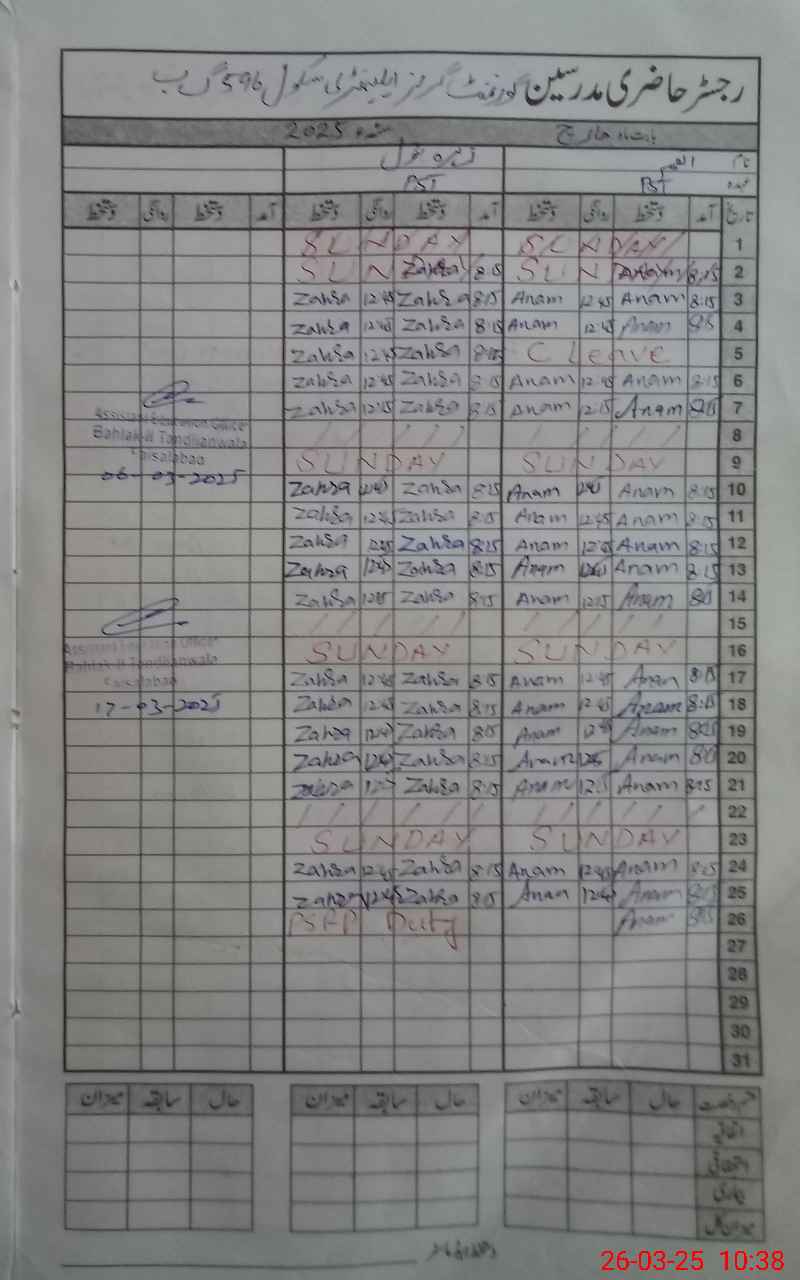 رجسٹر حاضری مدرسین گورنمنٹ گرلز ایلیمنٹری سکول 596 گ ب
بابت ماہ مارچ 2025
نام
زہرہ بتول
عہدہ PST PST
تاریخ آمد دستخط روانگی دستخط آمد دستخط روانگی دستخط آمد دستخط روانگی دستخط
SUNDAY SUNDAY 1
SUN Zahra 8:15 SUN Anam 8:15 2
Zahra 12:45 Zahra 8:15 Anam 12:45 Anam 8:15 3
Zahra 12:45 Zahra 8:15 Anam 12:45 Anam 4
Zahra 12:45 Zahra 8:15 C Leave 5
Zahra 12:45 Zahra 8:15 Anam 12:45 Anam 8:15 6
Zahra 12:15 Zahra 8:15 Anam 12:15 Anam 7
Assistant Education Officer
Bahlak-II Tandlianwala
Faisalabad
06-03-2025
8
SUNDAY SUNDAY 9
Zahra Zahra 8:15 Anam Anam 8:15 10
Zahra 12:45 Zahra 8:15 Anam 12:45 Anam 8:15 11
Zahra Zahra 8:15 Anam 12:45 Anam 8:15 12
Zahra 12:45 Zahra 8:15 Anam Anam 8:15 13
Zahra Zahra 8:15 Anam 12:15 Anam 14
15
SUNDAY SUNDAY 16
Assistant Education Officer
Bahlak-II Tandlianwala
Faisalabad
17-03-2025
Zahra 12:45 Zahra 8:15 Anam 12:45 Anam 8:15 17
Zahra 12:45 Zahra 8:15 Anam 12:45 Anam 8:15 18
Zahra Zahra 8:15 Anam Anam 19
Zahra Zahra 8:15 Anam Anam 20
Zahra Zahra 8:15 Anam Anam 8:15 21
22
SUNDAY SUNDAY 23
Zahra 12:45 Zahra 8:15 Anam 12:45 Anam 8:15 24
Zahra 12:45 Zahra 8:15 Anam 12:45 Anam 8:15 25
Duty Anam 26
27
28
29
30
31
حال سابقہ میزان حال سابقہ میزان حال سابقہ میزان
اتفاقیہ
بیماری
26-03-25 10:38